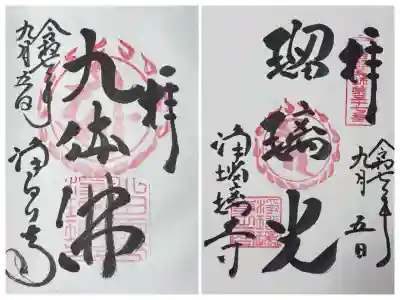 拝
九体佛
令和七年
九月五日
浄るり寺
拝
令和七年
九月五日
瑠璃光
浄瑠璃寺